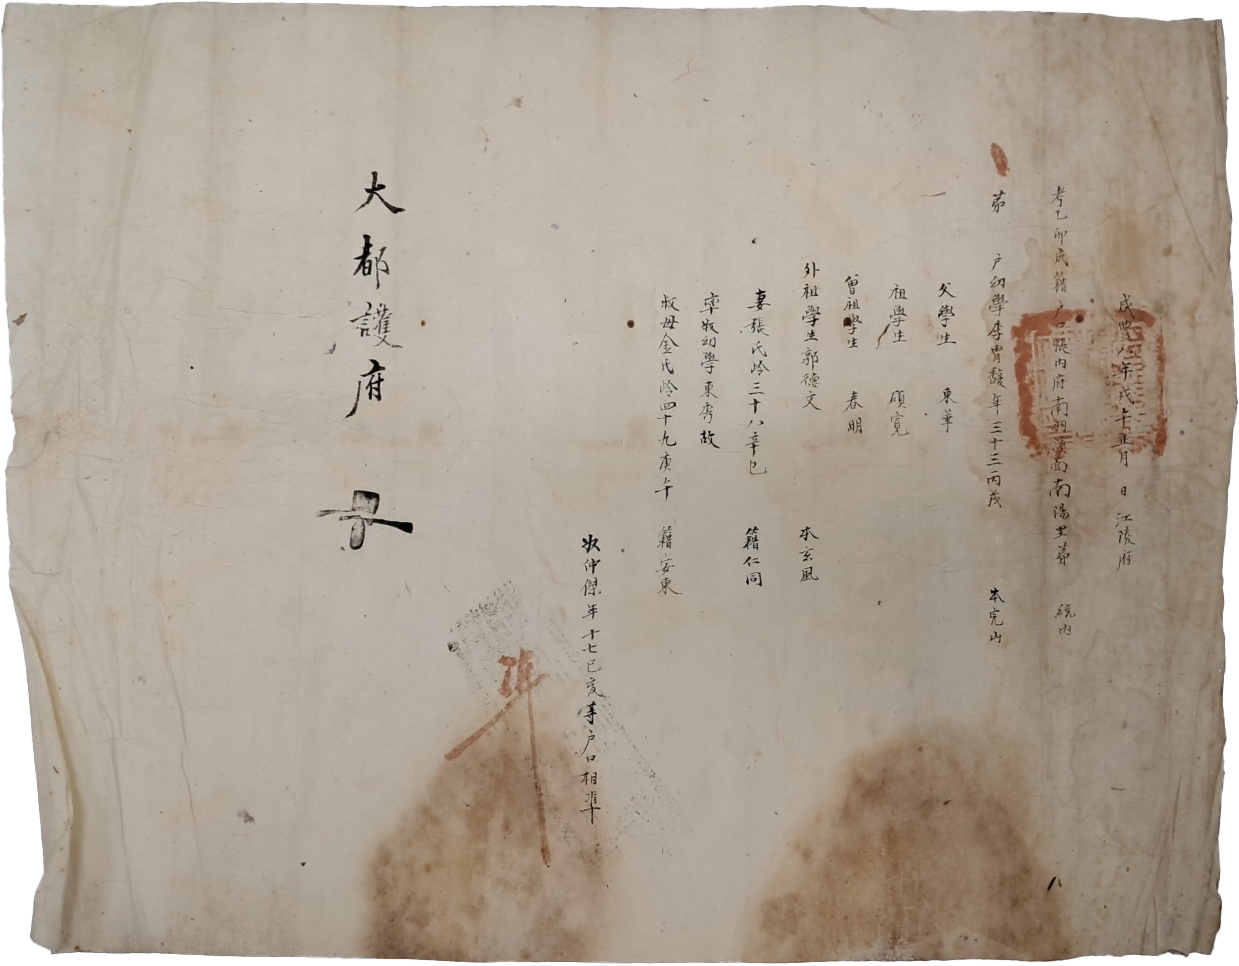 咸豐八年戊午正月 日 江陵府
考乙卯成籍戶口帳內府南羽溪面南陽里第 統內
第 戶幼學李胄馥年三十三丙戌 本完山
父學生 東華
祖學生 碩寬
曾祖學生 春明
外祖學生郭德文 本玄風
妻張氏齡三十八辛巳 籍仁同
率叔幼學東秀故
叔母金氏齡四十九庚午 籍安東
次仲傑年十七己亥等戶口相準
準
大都護府